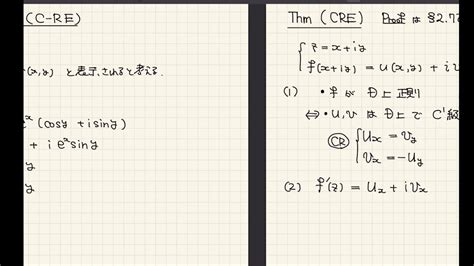 (C-RE)
(x,y) と表示されると考える.
e^x (cos y + i sin y)
+ i e^x sin y
y
y
Thm (CRE) Proof は §2.7
{ z = x+iy
f(x+iy) = u(x,y) + i v
(1) ・f が D上 正則
⇔ ・u, v は D上で C¹級
(CR) { u_x = v_y
v_x = -u_y
(2) f'(z) = u_x + i v_x